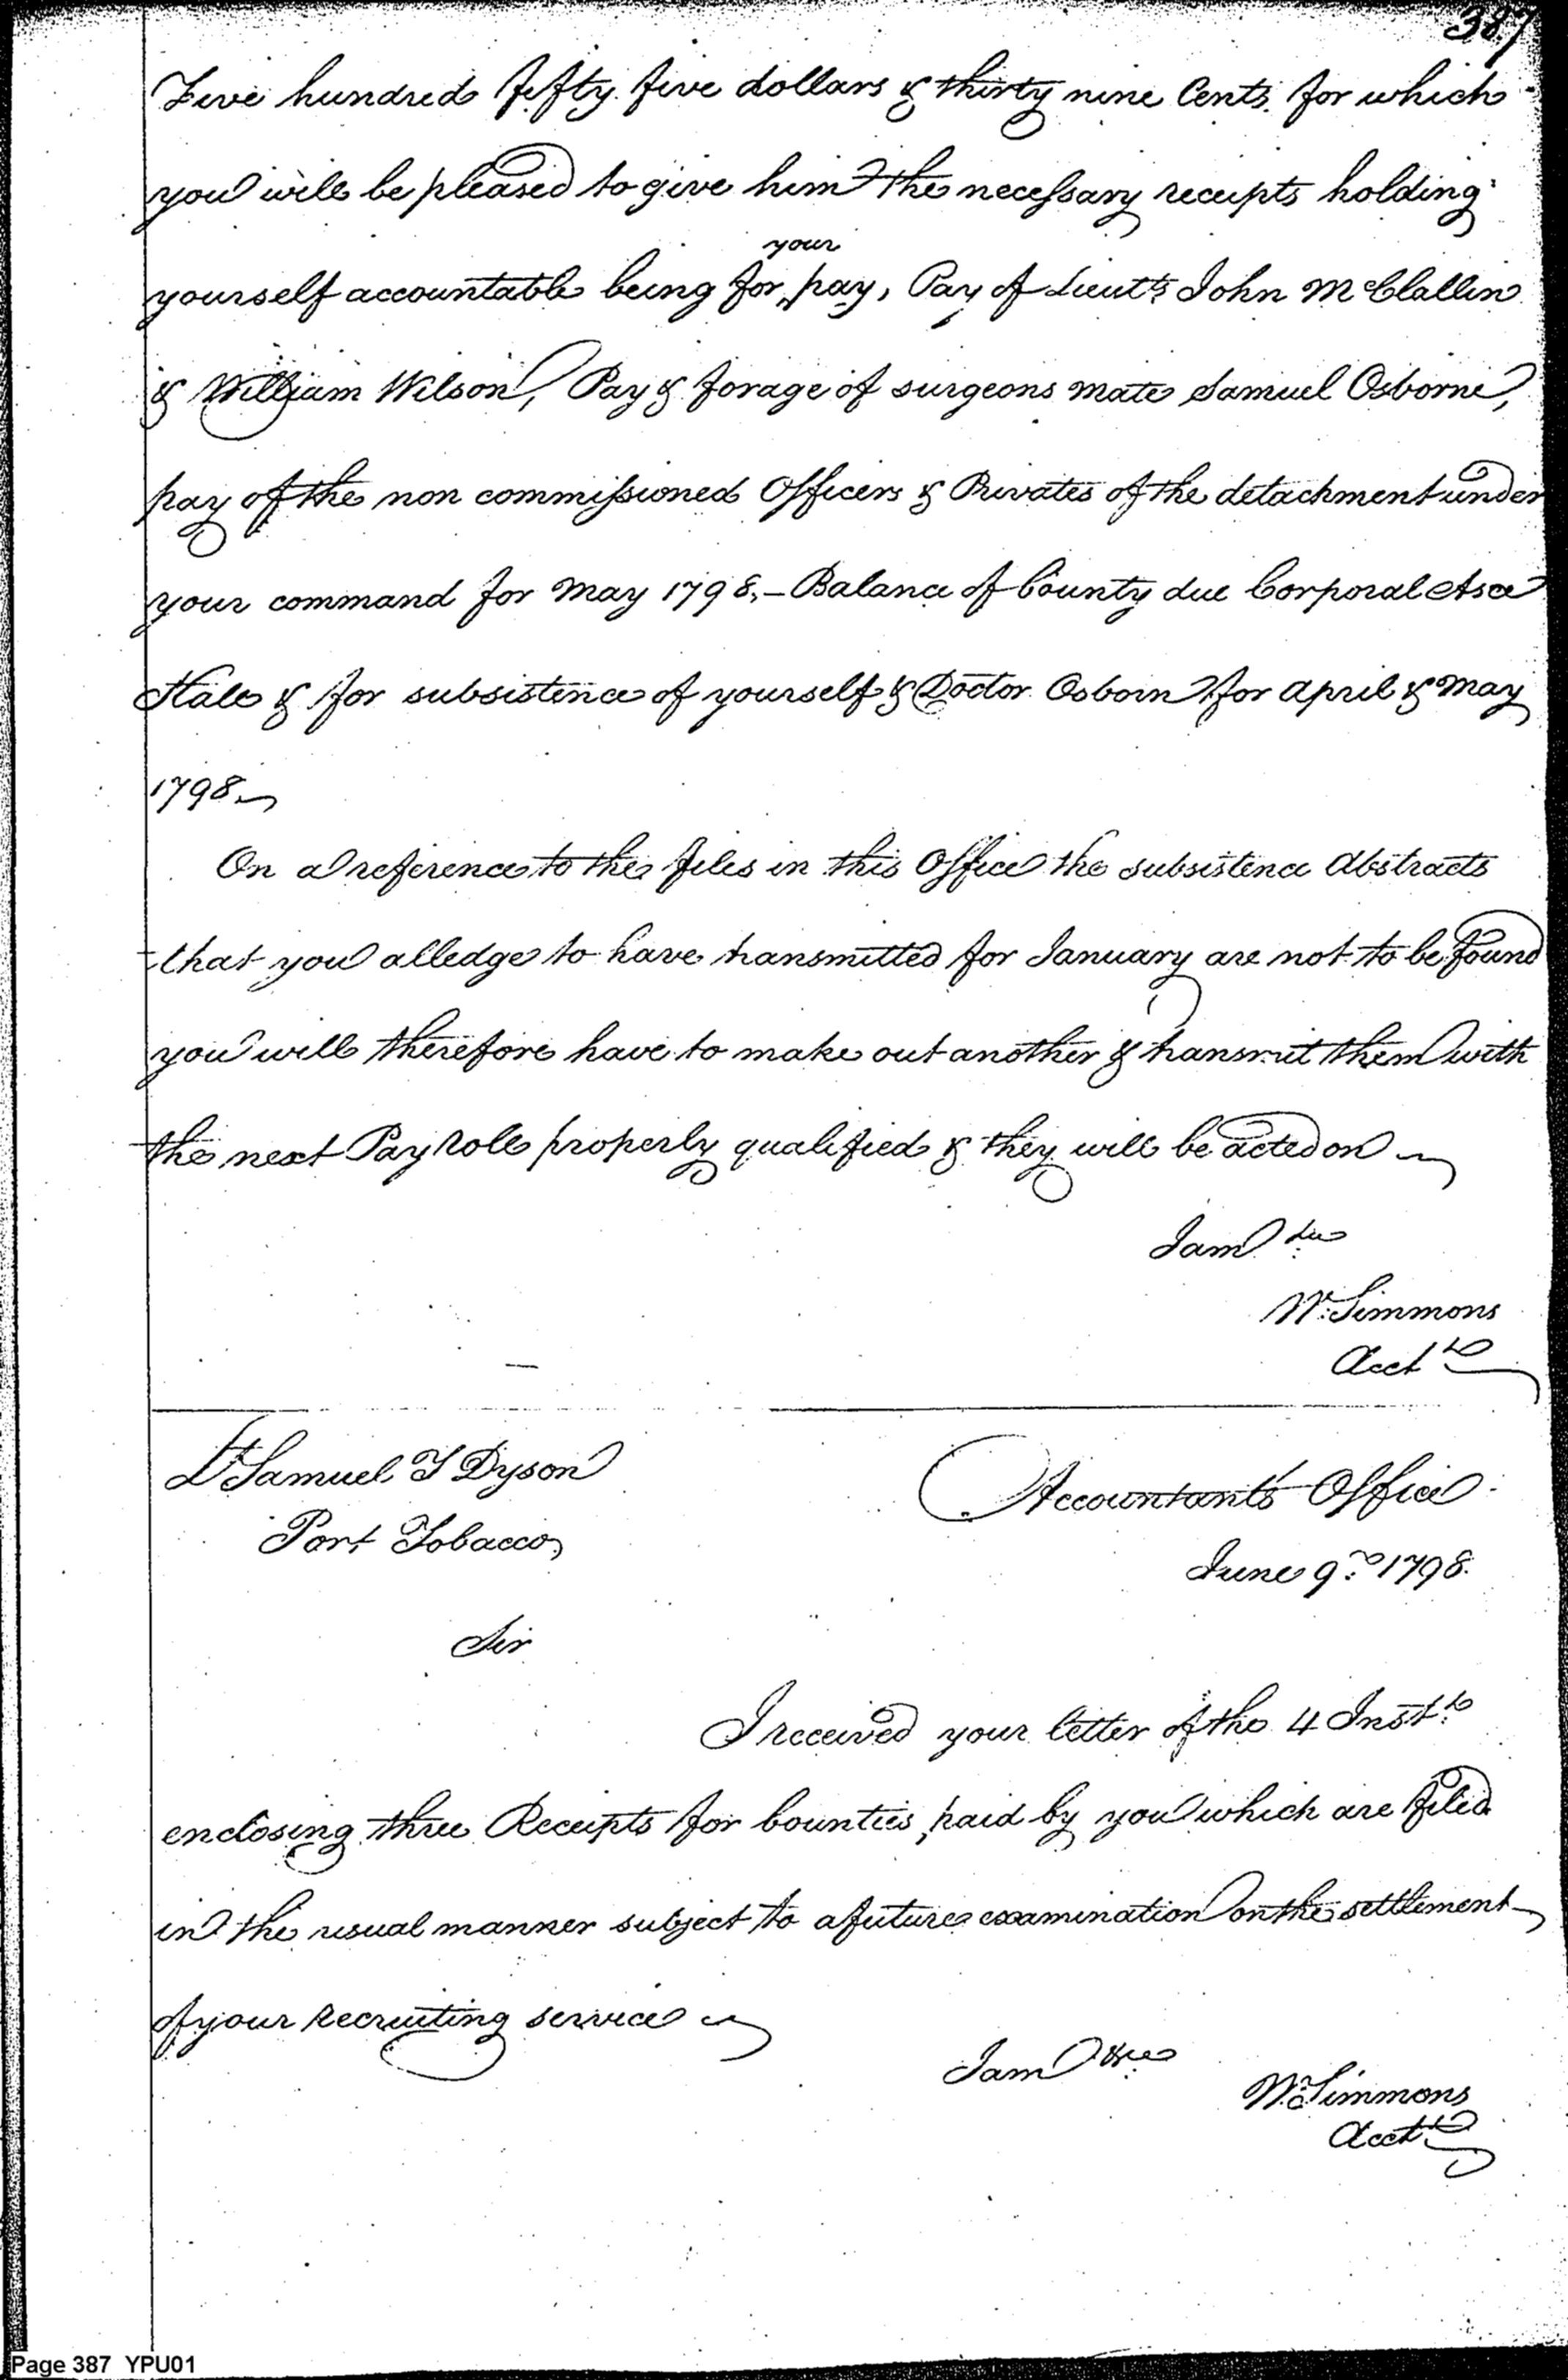 387
Five hundred fifty five dollars & thirty nine Cents. for which
you will be pleased to give him the necessary receipts holding
your
yourself accountable being for pay, Pay of Lieuts. John McClallin
& William Wilson, Pay & forage of surgeons mate Samuel Osborne,
pay of the non commissioned Officers & Privates of the detachment under
your command for May 1798,- Balance of bounty due Corporal Asa
Hale & for subsistence of yourself & Doctor Osborn for April & May
1798
On a reference to the files in this Office the subsistence Abstracts
that you alledge to have transmitted for January are not to be found
you will therefore have to make out another & transmit them with
the next Pay Role properly qualified & they will be acted on
I am &c
Wm. Simmons
Acct
Lt Samuel T Dyson
Port Tobacco
Accountant's Office
June 9. 1798.
Sir
I received your letter of the 4 Inst.
enclosing three Receipts for bounties, paid by you which are filed
in the usual manner subject to a future examination on the settlement
of your Recruiting service
I am &c
Wm. Simmons
Acct
Page 387 YPU01